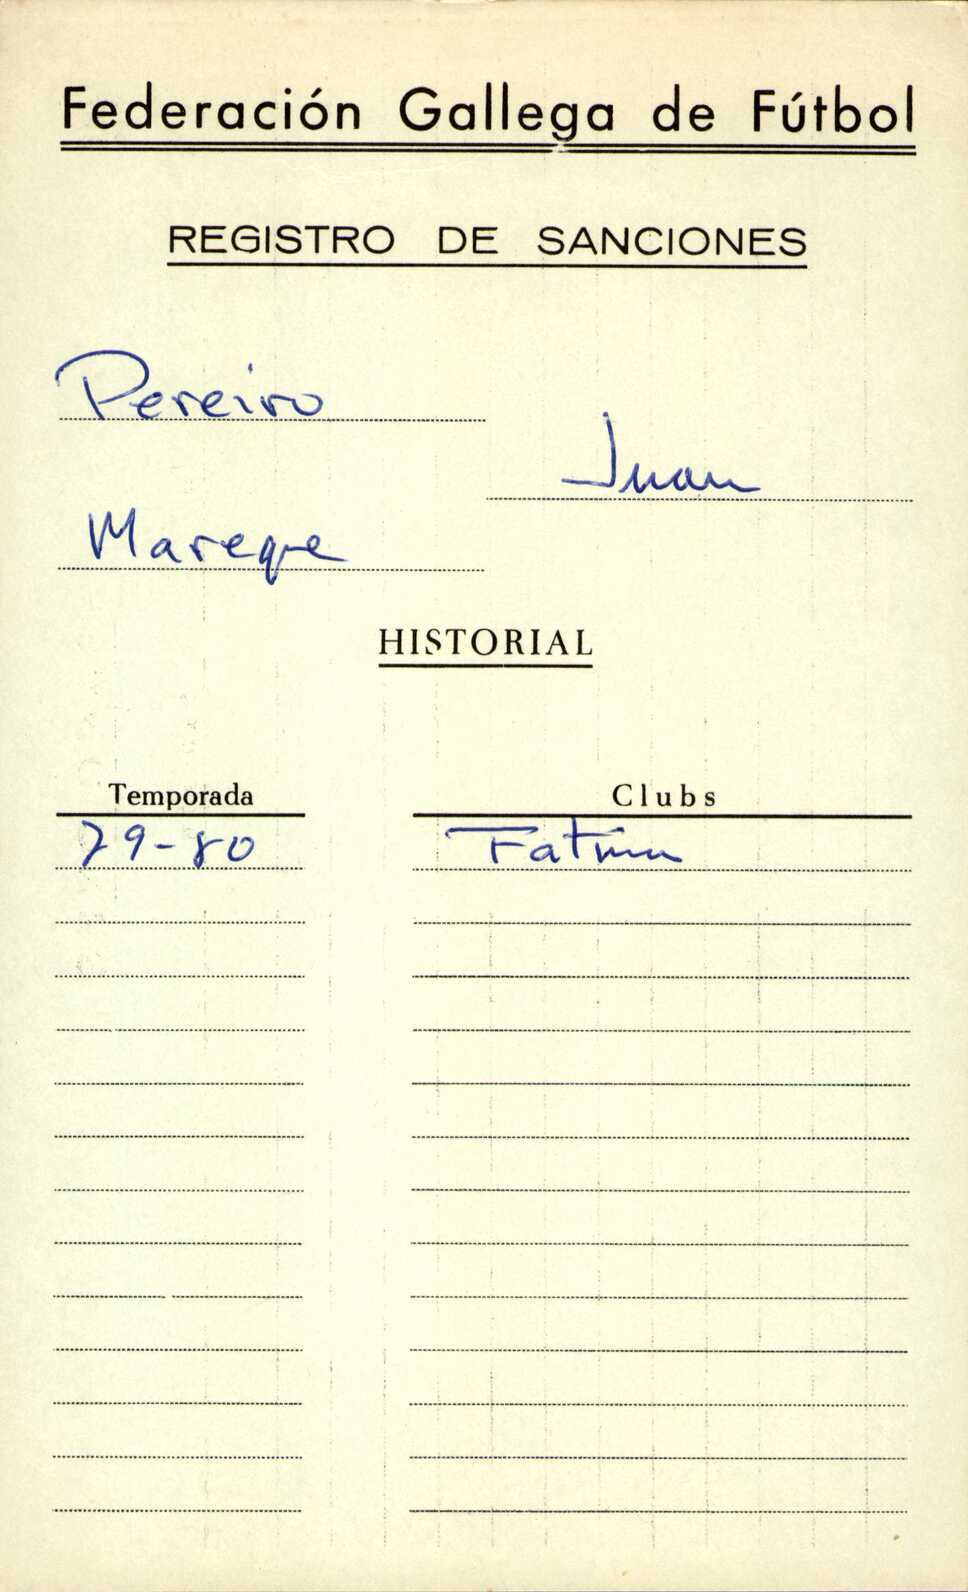 Federación Gallega de Fútbol
REGISTRO DE SANCIONES
Pereiro
Juan
Mareque
HISTORIAL
Temporada Clubs
79-80 Fatima